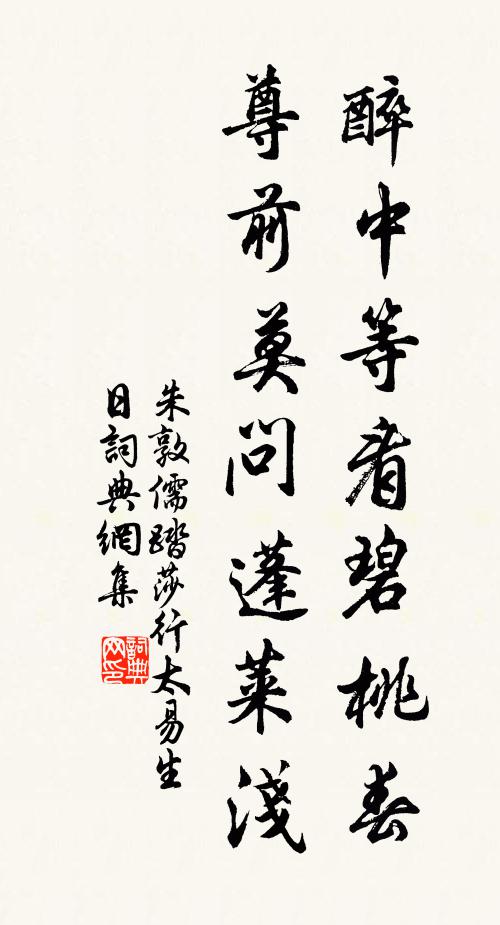 醉中等看碧桃春
尊前莫問蓬萊淺
朱敦儒踏莎行太易生
日詞典網集
詞典網印